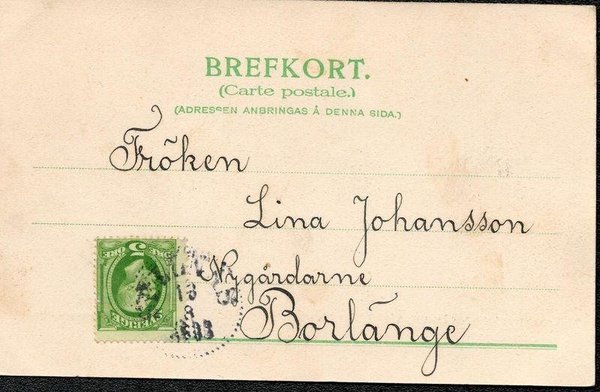 BREFKORT.
(Carte postale.)
(ADRESSEN ANBRINGAS Å DENNA SIDA.)
Fröken
Lina Johansson
Nygårdarne
Borlänge
5
ÖRE
SVERIGE
18
8